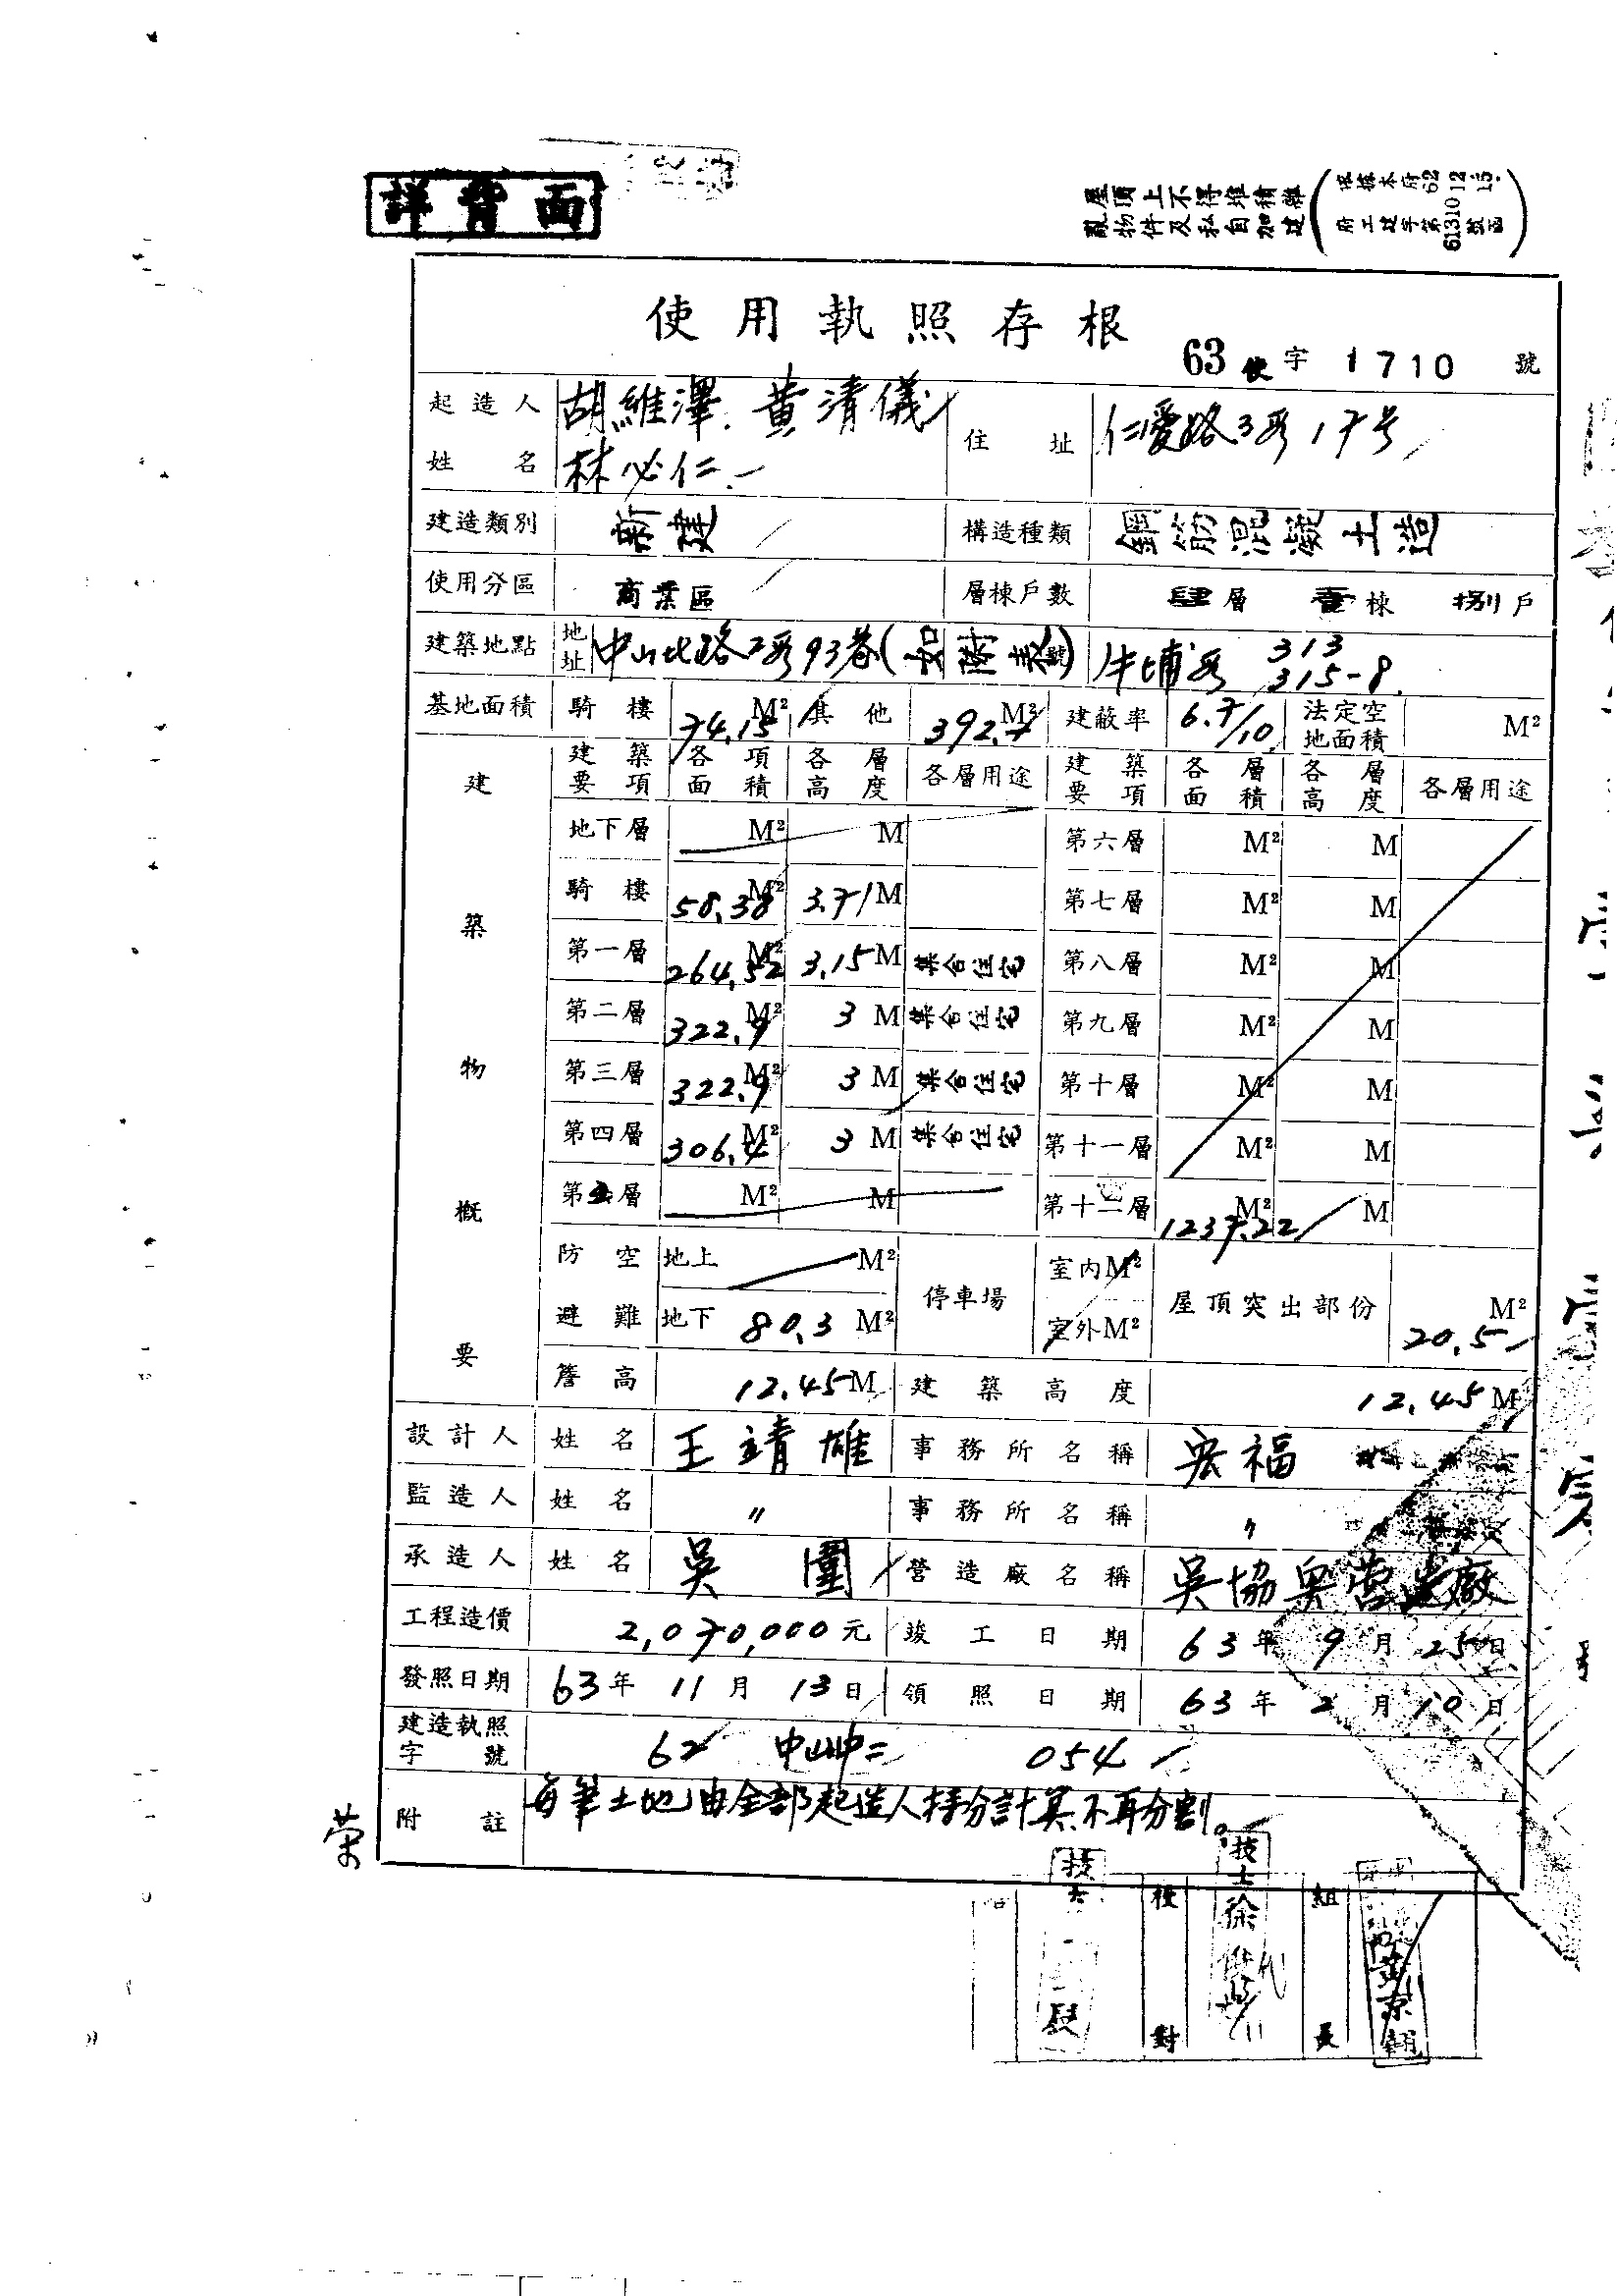 詳背面
屋頂上不得堆積雜
亂物件及私自加建
(依據本府62 12 15.
府工建字第61310號函)
使用執照存根
63使字1710號
起造人姓名 胡維澤. 黃清儀 林必仁. 住址 仁愛路3段17号
建造類別 新建 構造種類 鋼筋混凝土造
使用分區 商業區 層棟戶數 肆層 壹棟 捌戶
建築地點 地址 中山北路2段93巷(如附表號) 牛埔段 313 315-8.
基地面積 騎樓 74.15 M² 其他 392.7 M² 建蔽率 6.7/10 法定空地面積 M²
建築物概要
建築要項 各項面積 各層高度 各層用途 建築要項 各層面積 各層高度 各層用途
地下層 M² M 第六層 M² M
騎樓 58.38 M² 3.71 M 第七層 M² M
第一層 264.52 M² 3.15 M 集合住宅 第八層 M² M
第二層 322.9 M² 3 M 集合住宅 第九層 M² M
第三層 322.9 M² 3 M 集合住宅 第十層 M² M
第四層 306.4 M² 3 M 集合住宅 第十一層 M² M
第五層 M² M 第十二層 M² 1237.22 M
防空避難 地上 M² 停車場 室內M² 屋頂突出部份 M² 20.5
地下 80.3 M² 室外M²
簷高 12.45 M 建築高度 12.45 M
設計人 姓名 王靖雄 事務所名稱 宏福
監造人 姓名 〃 事務所名稱 〃
承造人 姓名 吳圍 營造廠名稱 吳協興營造廠
工程造價 2,070,000元 竣工日期 63年9月25日
發照日期 63年11月13日 領照日期 63年2月10日
建造執照字號 62 中山中二 054
附註 每筆土地由全部起造人持分計算.不再分割。
技士徐
對
組長
黃